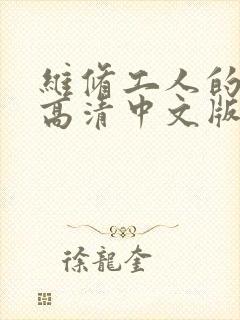 維脩工人的
高清中文版
徐龍奎